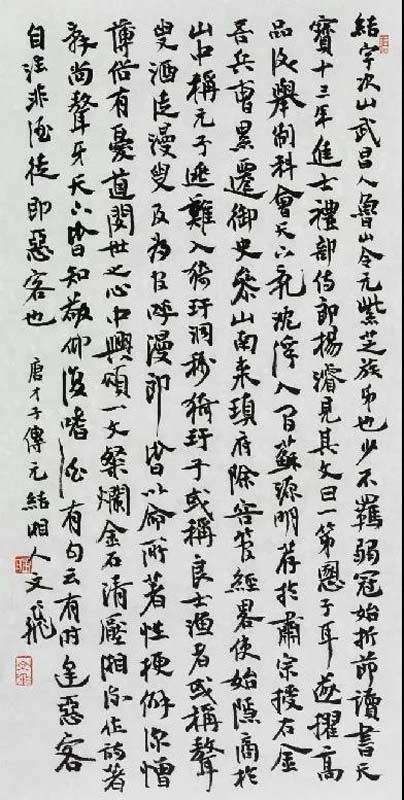 結字次山武昌人魯山令元紫芝族弟也少不羈弱冠始折節讀書天
寶十三年進士禮部侍郎楊濬見其文曰一第慁子耳遂擢高
品後舉制科會天下亂沈浮人間蘇源明荐於肅宗授右金
吾兵曹累遷御史參山南来瑱府除容管經畧使始隱商於
山中稱元子逃難入猗玗洞稱猗玗子或稱良士酒者或稱聱
叟酒徒漫叟及為官呼漫郎皆以命所著性梗僻深憎
薄俗有憂道閔世之心中興頌一文粲爛金石清奪湘流作詩著
辞尚聱牙天下皆知敬仰復嗜酒有句云有时逢惡客
自注非酒徒即惡客也 唐才子傳元結湘人文飛